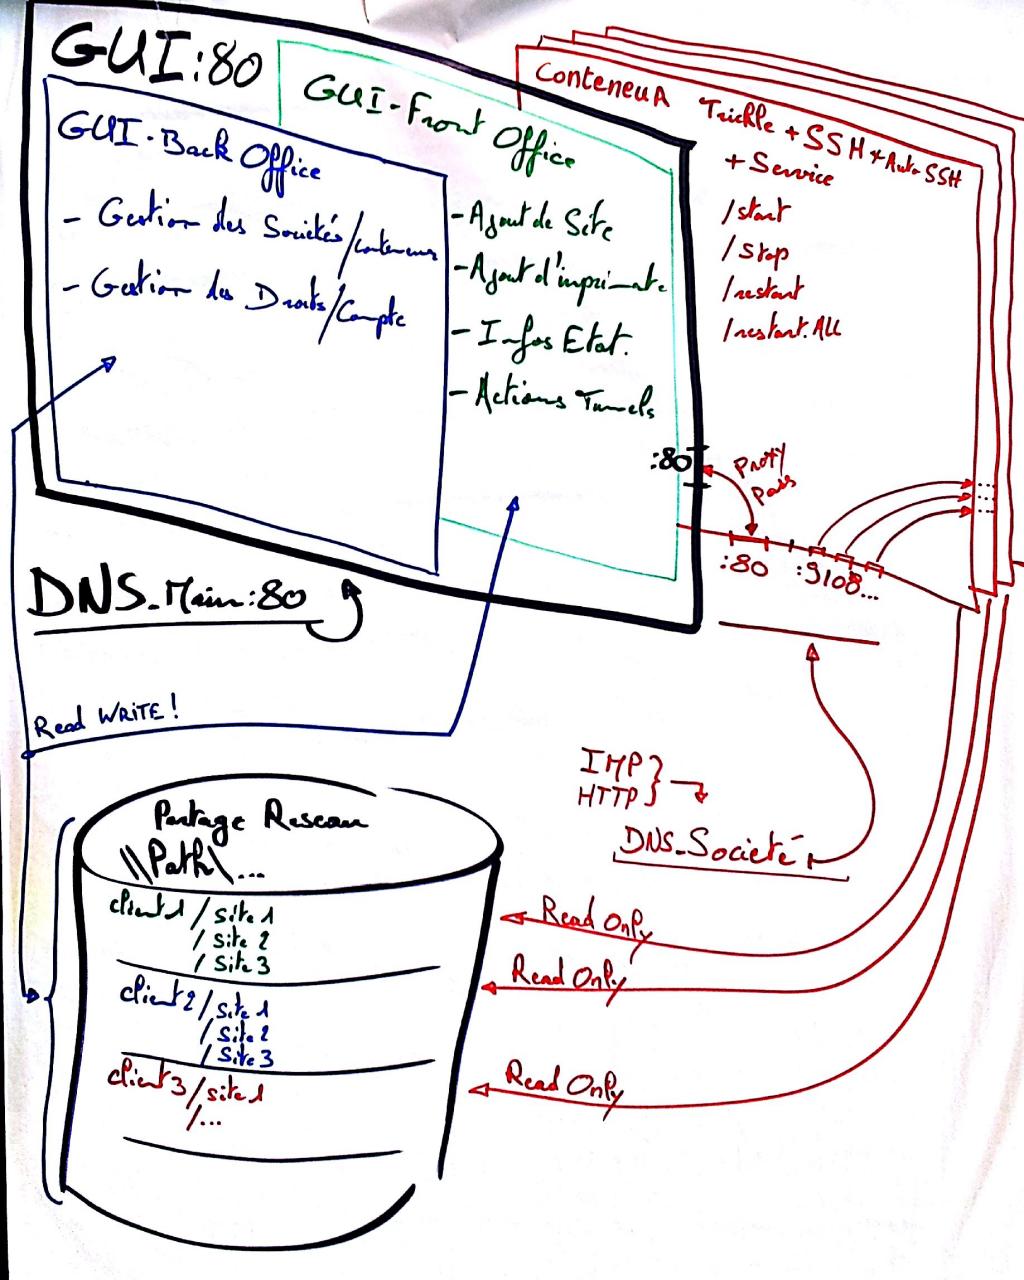 GUI:80
GUI-Back Office
- Gestion des Sociétés/conteneurs
- Gestion des Droits/Compte
GUI-Front Office
- Ajout de Site
- Ajout d'imprimante
- Infos Etat.
- Actions Tunnels
:80
Conteneur Trickle + SSH + Auto SSH
+ Service
/start
/stop
/restart
/restart.All
Proxy
Pass
:80
:9108...
DNS_Main:80
Read WRITE!
IMP
HTTP
DNS_Societé
Partage Reseau
\\Path\...
client1/site1
/site 2
/site3
client2/site1
/site2
/site3
client3/site1
/...
Read Only
Read Only
Read Only